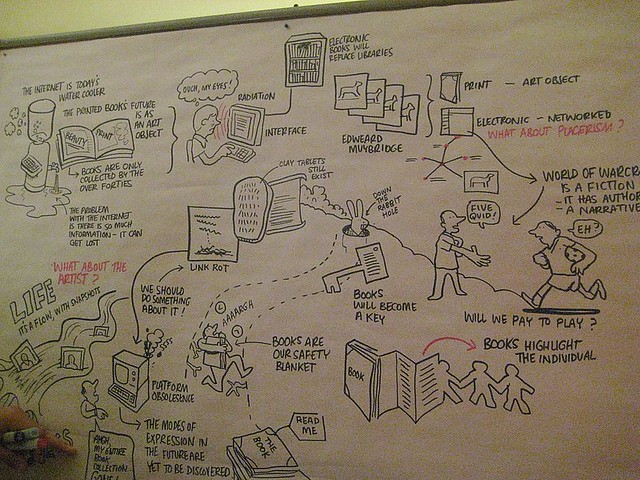 THE INTERNET IS TODAY'S
WATER COOLER
THE PRINTED BOOK'S FUTURE
IS AS
AN ART
OBJECT
BEAUTY
PRINT
BOOKS ARE ONLY
COLLECTED BY THE
OVER FORTIES
THE PROBLEM
WITH THE INTERNET
IS THERE IS SO MUCH
INFORMATION - IT CAN
GET LOST
OUCH, MY EYES!
RADIATION
INTERFACE
ELECTRONIC
BOOKS WILL
REPLACE LIBRARIES
EDWEARD
MUYBRIDGE
PRINT - ART OBJECT
ELECTRONIC - NETWORKED
WHAT ABOUT PLAGERISM?
WORLD OF WARCR
IS A FICTION
- IT HAS AUTHOR
- A NARRATIVE
CLAY TABLETS
STILL
EXIST
DOWN
THE RABBIT
HOLE
LINK ROT
BOOKS
WILL BECOME
A KEY
FIVE
QUID!
EH?
WILL WE PAY TO PLAY?
WHAT ABOUT THE
ARTIST?
LIFE
IT'S A FLOW, WITH SNAPSHOTS
WE SHOULD
DO SOMETHING
ABOUT IT!
AAAARGH
BOOKS ARE
OUR SAFETY
BLANKET
PLATFORM
OBSOLESENCE
THE MODES OF
EXPRESSION IN
THE FUTURE ARE
YET TO BE DISCOVERED
READ
ME
THE
BOOK
BOOK
BOOKS HIGHLIGHT
THE INDIVIDUAL
AAGH,
MY ENTIRE
BOOK
COLLECTION